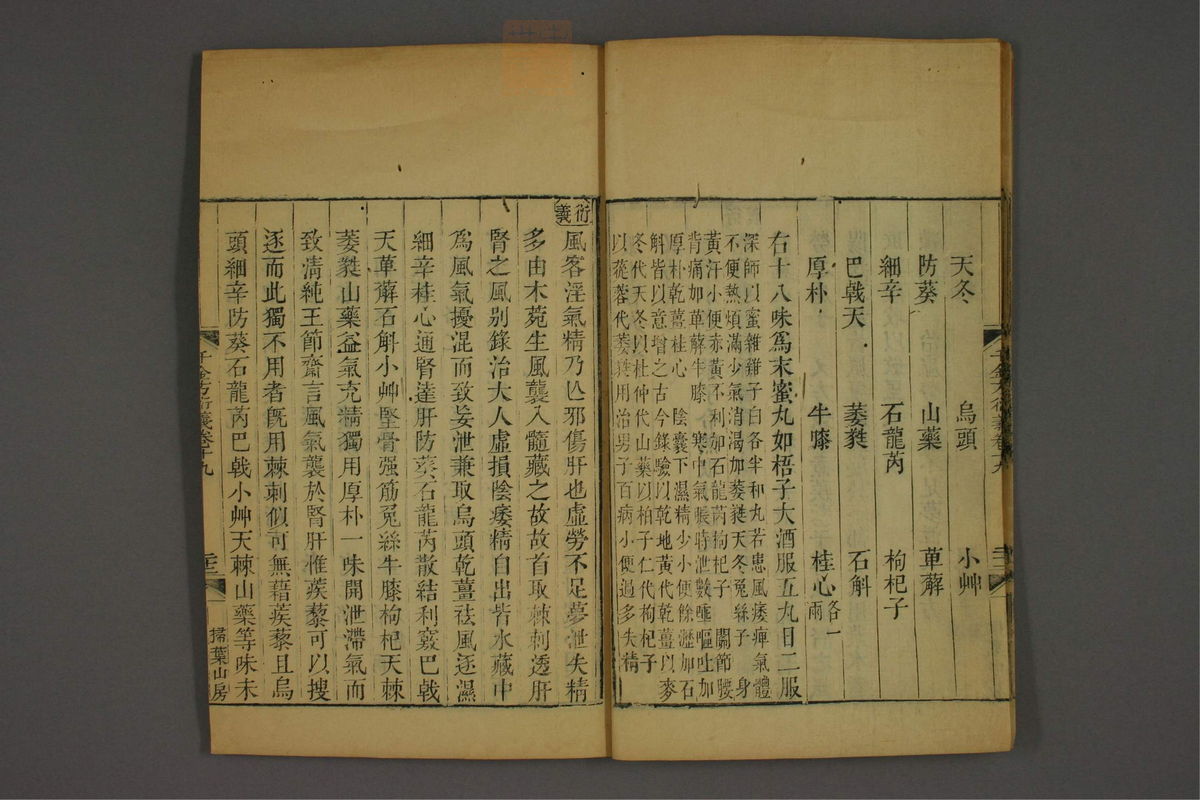 天冬 烏頭 小艸
防葵 山藥 萆薢
細辛 石龍芮 枸杞子
巴戟天 萎蕤 石斛
厚朴 牛膝 桂心各一兩
右十八味爲末蜜丸如梧子大酒服五丸日二服
深師以蜜雜雞子白各半和丸若患風痿痺氣體
不便熱煩滿少氣消渴加萎蕤天冬菟絲子 身
黃汗小便赤黃不利加石龍芮枸杞子 關節腰
背痛加萆薢牛膝 寒中氣脹時泄數噫嘔吐加
厚朴乾薑桂心 陰囊下濕精少小便餘瀝加石
斛皆以意增之古今錄驗以乾地黃代乾薑以麥
冬代天冬以杜仲代山藥以柏子仁代枸杞子
以蓯蓉代萎蕤用治男子百病小便過多失精
衍義
風客淫氣精乃亾邪傷肝也虛勞不足夢泄失精
多由木菀生風襲入髓藏之故故首取棘刺透肝
腎之風别錄治大人虛損陰痿精自出皆水藏中
爲風氣擾混而致妄泄兼取烏頭乾薑祛風逐濕
細辛桂心通腎達肝防葵石龍芮散結利竅巴戟
天萆薢石斛小艸堅骨强筋菟絲牛膝枸杞天棘
萎蕤山藥益氣充精獨用厚朴一味開泄滯氣而
致清純王節齋言風氣襲於腎肝惟蒺藜可以搜
逐而此獨不用者旣用棘刺似可無藉蒺藜且烏
頭細辛防葵石龍芮巴戟小艸天棘山藥等味未
千金方衍義卷十九
掃葉山房